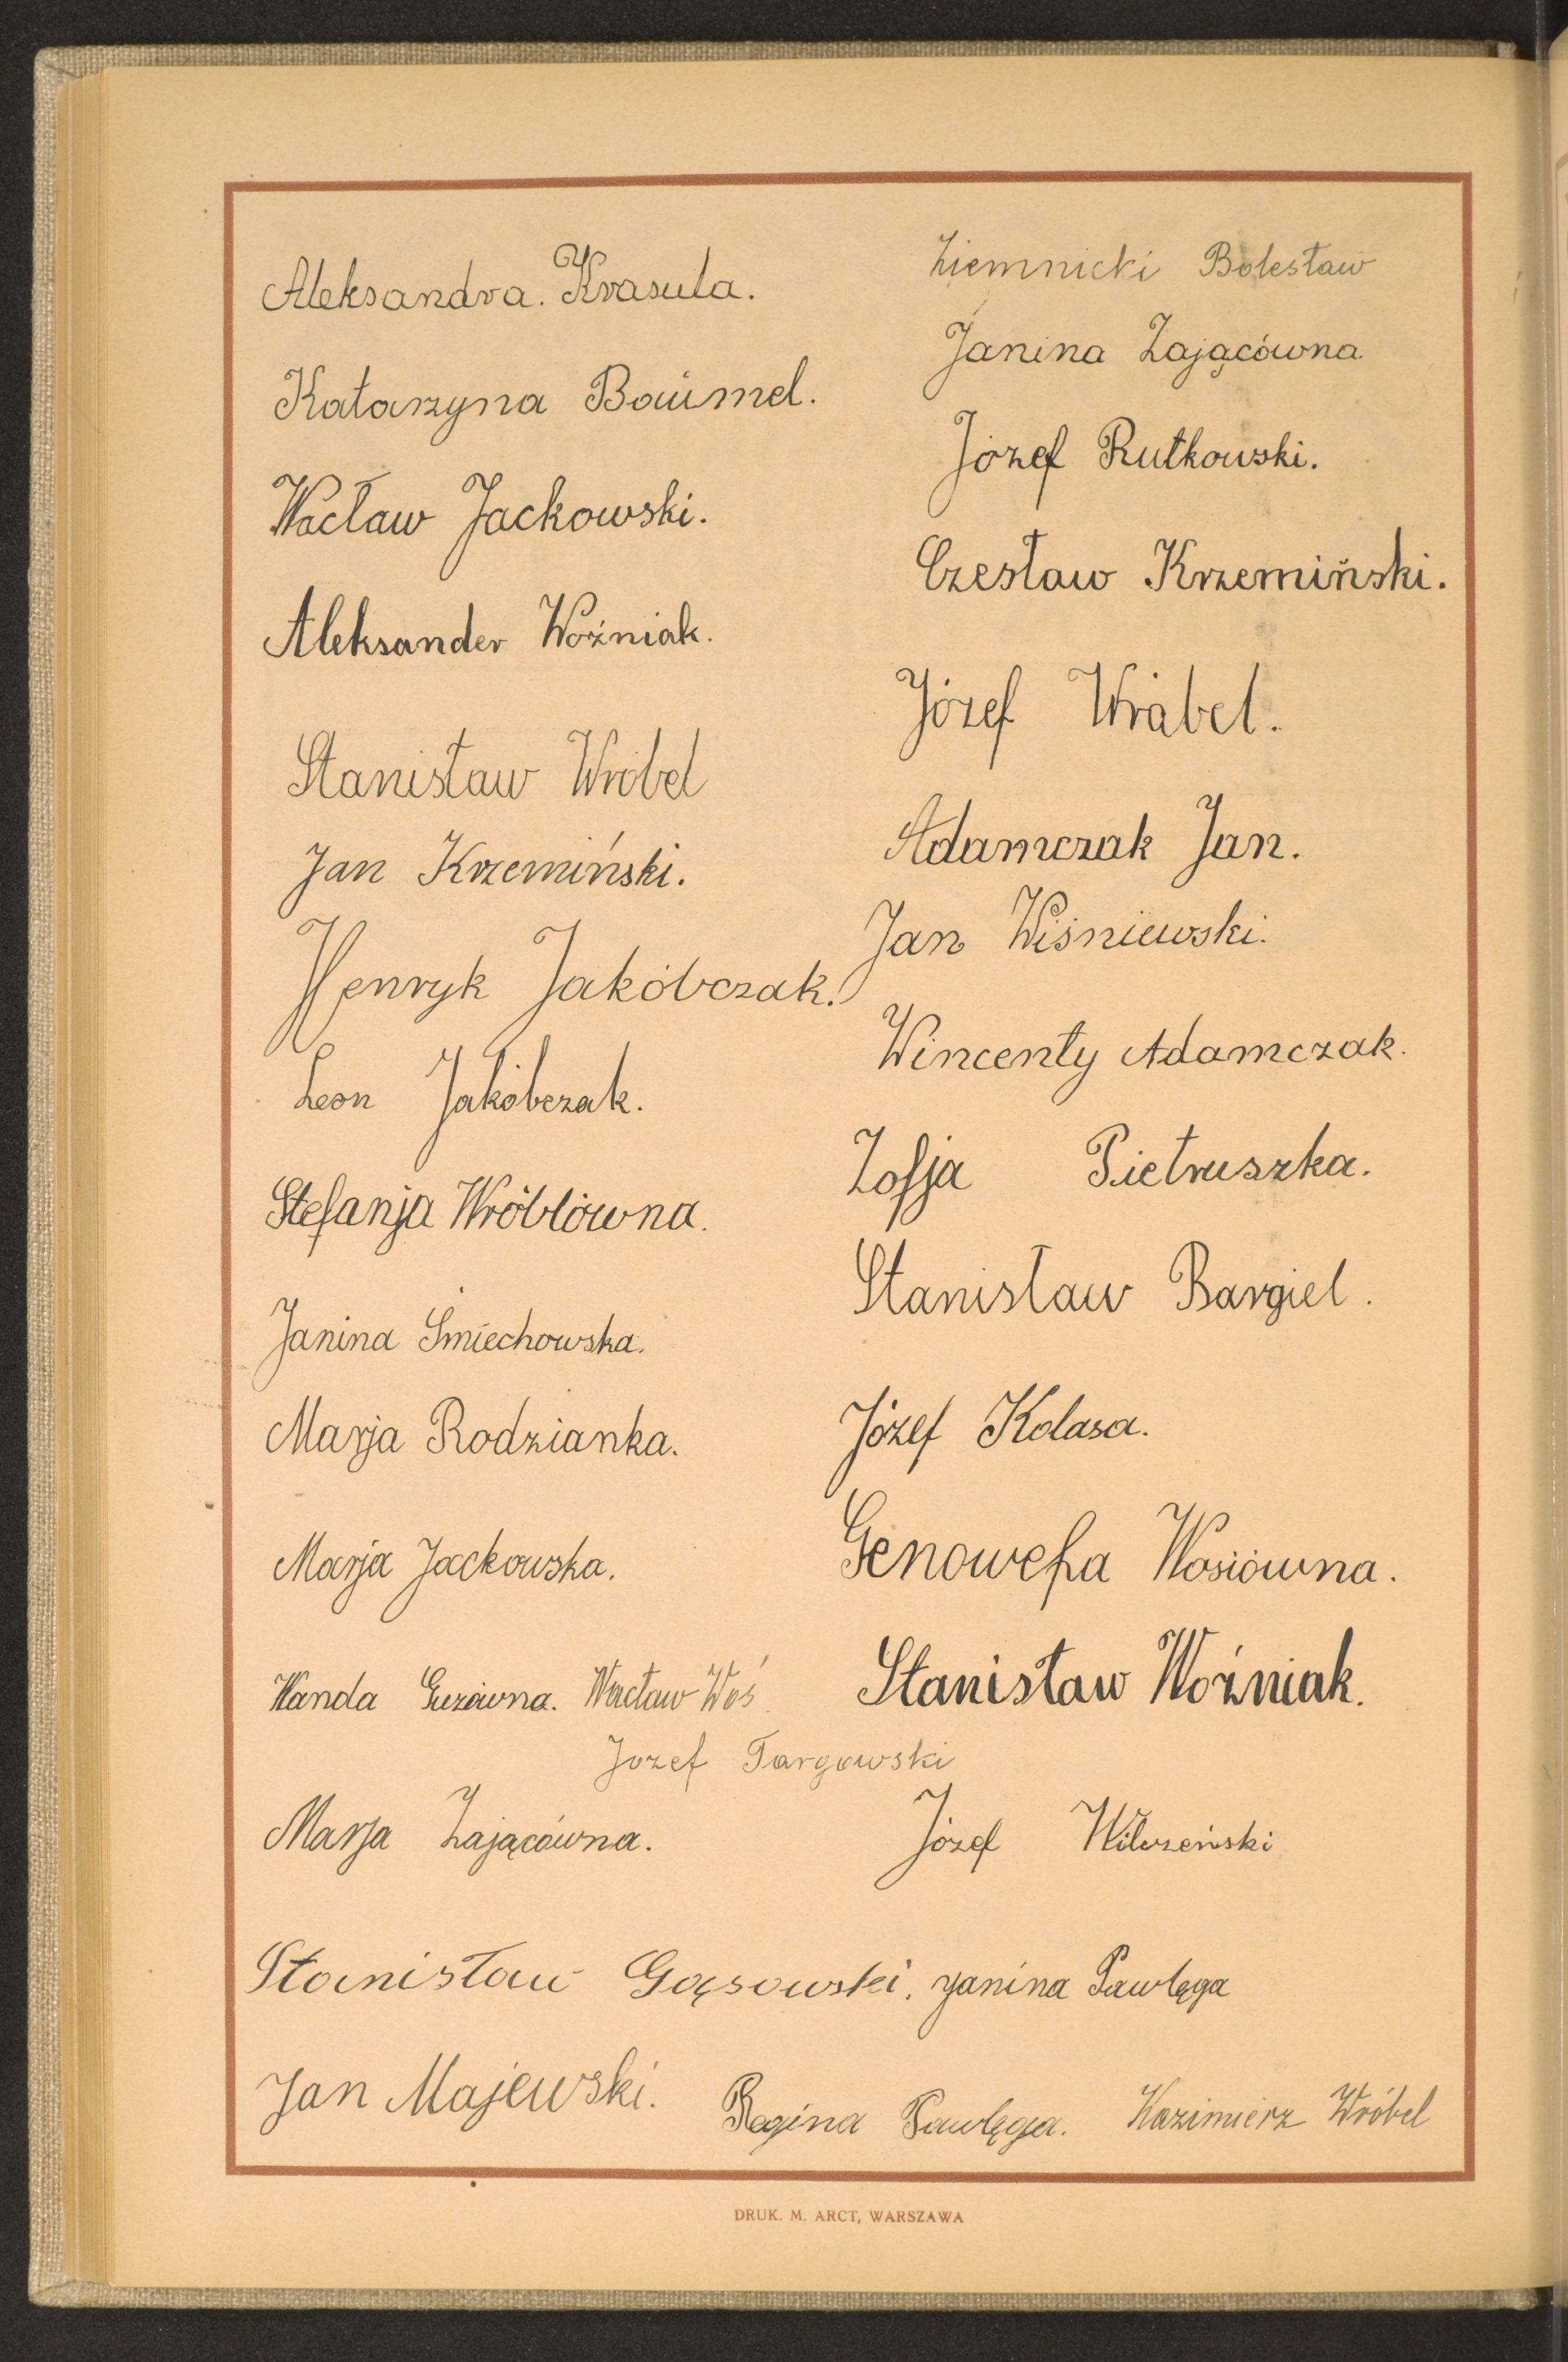 Aleksandra. Krasula.
Katarzyna Baúmel.
Wacław Jackowski.
Aleksander Woźniak.
Stanisław Wróbel
Jan Krzemiński.
Henryk Jakóbczak.
Leon Jakóbczak.
Stefanja Wróblówna.
Janina Śmiechowska.
Marja Rodzianka.
Marja Jackowska.
Wanda Guzówna. Wacław Woś.
Józef Targowski
Marja Zającówna.
Stanisław Gąsowski. Janina Pawlęga
Jan Majewski. Regina Pawlęga. Kazimierz Wróbel
Ziemnicki Bolesław
Janina Zającówna
Józef Rutkowski.
Czesław Krzemiński.
Józef Wrábel.
Adamczak Jan.
Jan Wiśniewski.
Wincenty Adamczak.
Zofja Pietruszka.
Stanisław Bargiel.
Józef Kolasa.
Genowefa Wosiówna.
Stanisław Woźniak.
Józef
DRUK. M. ARCT, WARSZAWA